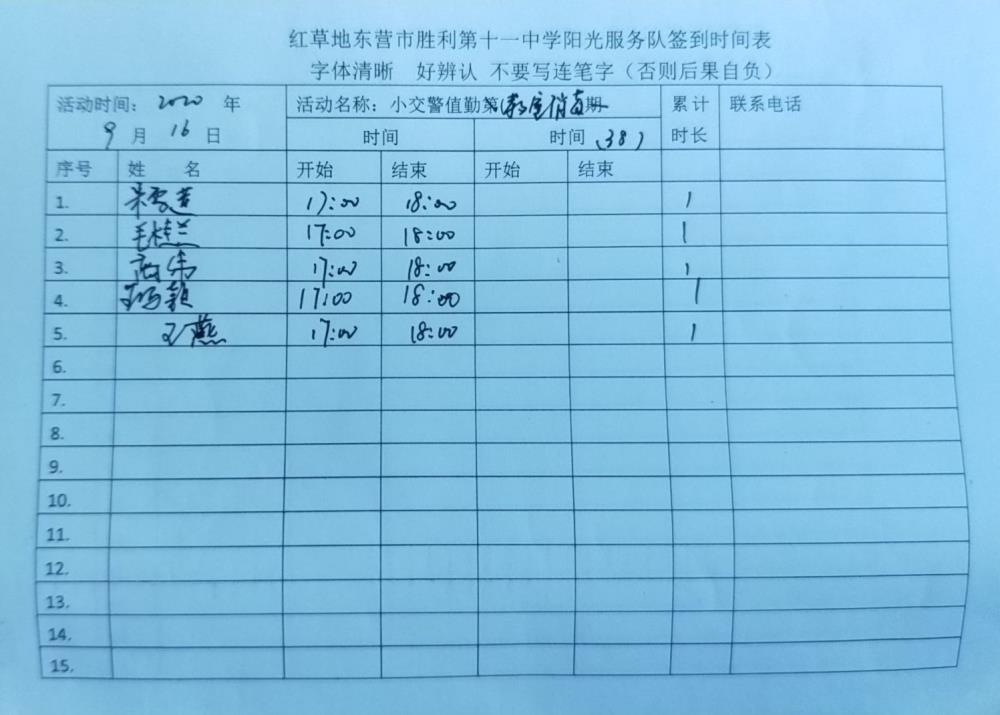 红草地东营市胜利第十一中学阳光服务队签到时间表
字体清晰 好辨认 不要写连笔字（否则后果自负）
活动时间： 2020 年 活动名称：小交警值勤第教室消毒期 累计 联系电话
9 月 16 日 时间 时间（38） 时长
序号 姓 名 开始 结束 开始 结束
1. 17:00 18:00 1
2. 毛桂兰 17:00 18:00 1
3. 17:00 18:00 1
4. 17:00 18:00 1
5. 王燕 17:00 18:00 1
6.
7.
8.
9.
10.
11.
12.
13.
14.
15.